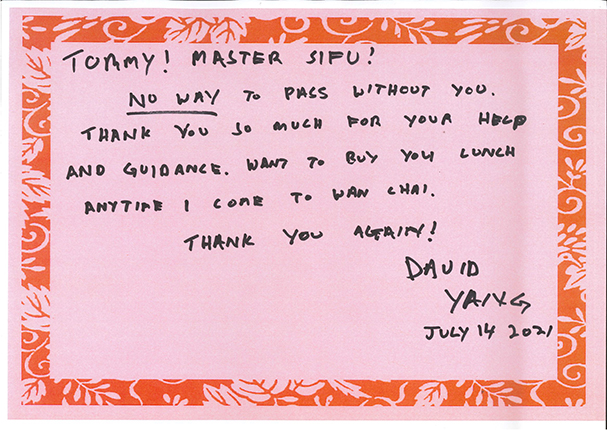 TOMMY! MASTER SIFU!
NO WAY TO PASS WITHOUT YOU.
THANK YOU SO MUCH FOR YOUR HELP
AND GUIDANCE. WANT TO BUY YOU LUNCH
ANYTIME I COME TO WAN CHAI.
THANK YOU AGAIN!
DAVID
YANG
JULY 14 2021